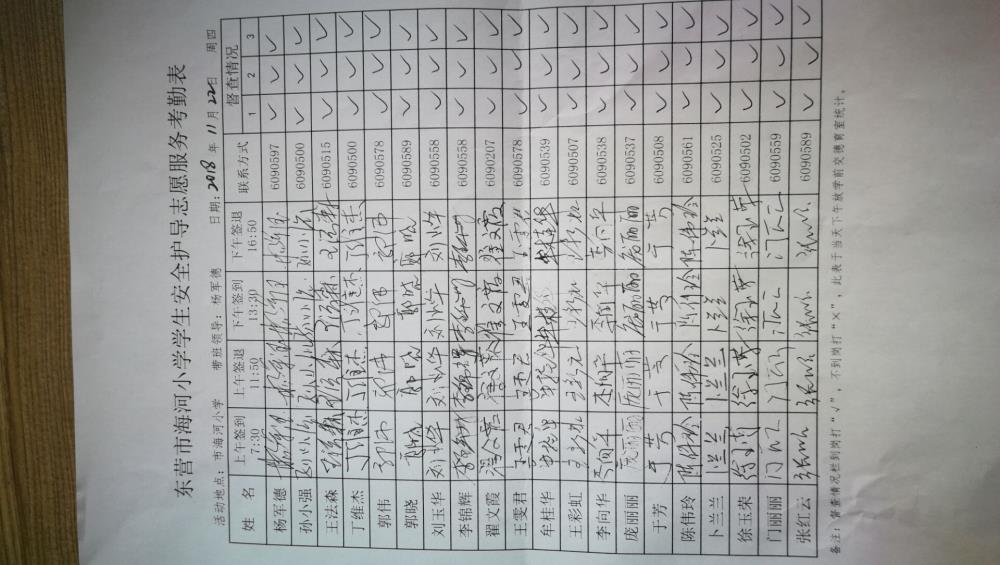 东营市海河小学学生安全护导志愿服务考勤表
活动地点：市海河小学 带班领导：杨军德 日期：2018年11月22日 周四
姓 名 上午签到 7:30 上午签退 11:50 下午签到 13:30 下午签退 16:50 联系方式 督查情况 1 2 3
杨军德 6090597 ✓ ✓ ✓
孙小强 孙小强 6090500 ✓ ✓ ✓
王法森 6090515 ✓ ✓ ✓
丁维杰 丁维杰 丁维杰 丁维杰 丁维杰 6090500 ✓ ✓ ✓
郭伟 郭伟 郭伟 郭伟 郭伟 6090578 ✓ ✓ ✓
郭晓 郭晓 郭晓 郭晓 郭晓 6090589 ✓ ✓ ✓
刘玉华 刘玉华 刘玉华 刘玉华 刘玉华 6090558 ✓ ✓ ✓
李锦辉 6090558 ✓ ✓ ✓
翟文霞 翟文霞 翟文霞 翟文霞 翟文霞 6090207 ✓ ✓ ✓
王雯君 王雯君 王雯君 王雯君 6090578 ✓ ✓ ✓
牟桂华 牟桂华 6090539 ✓ ✓ ✓
王彩虹 6090507 ✓ ✓ ✓
李向华 李向华 李向华 李向华 李向华 6090538 ✓ ✓ ✓
庞丽丽 庞丽丽 庞丽丽 庞丽丽 庞丽丽 6090537 ✓ ✓ ✓
于芳 于芳 于芳 于芳 于芳 6090508 ✓ ✓ ✓
陈伟玲 陈伟玲 陈伟玲 陈伟玲 陈伟玲 6090561 ✓ ✓ ✓
卜兰兰 卜兰兰 卜兰兰 卜兰 卜兰 6090525 ✓ ✓ ✓
徐玉荣 徐玉荣 徐玉荣 徐玉荣 徐玉荣 6090502 ✓ ✓ ✓
门丽丽 6090559 ✓ ✓ ✓
张红云 6090589 ✓ ✓ ✓
备注：督查情况栏到岗打“√”，不到岗打“×”，此表于当天下午放学前交德育室统计。